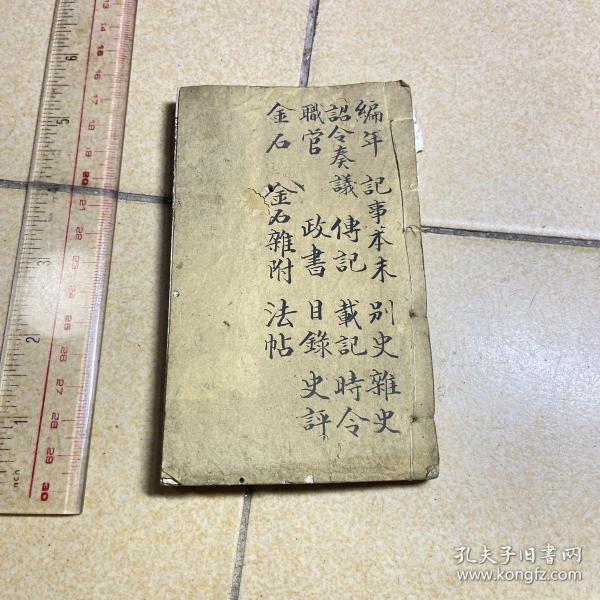 編年 記事本末 別史 雜史
詔令奏議 傳記 載記 時令
職官 政書 目錄 史評
金石 金石雜附 法帖
孔夫子旧書网
www.kongfz.com